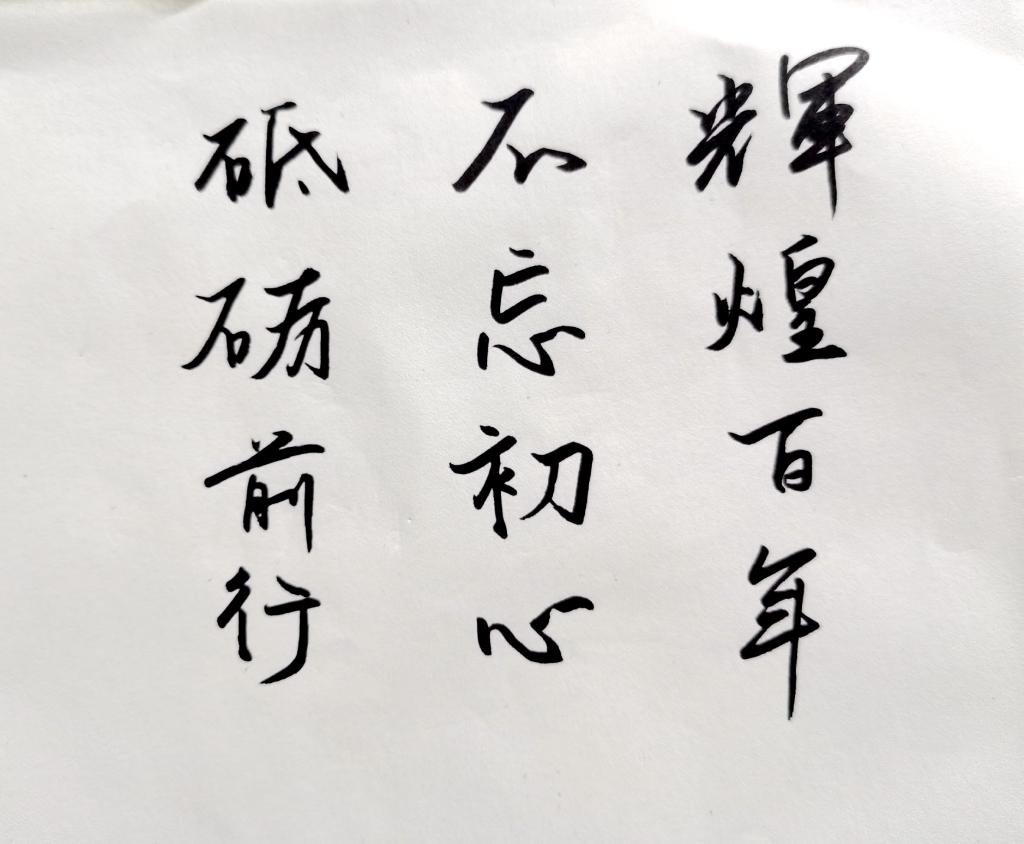 輝煌百年
不忘初心
砥砺前行